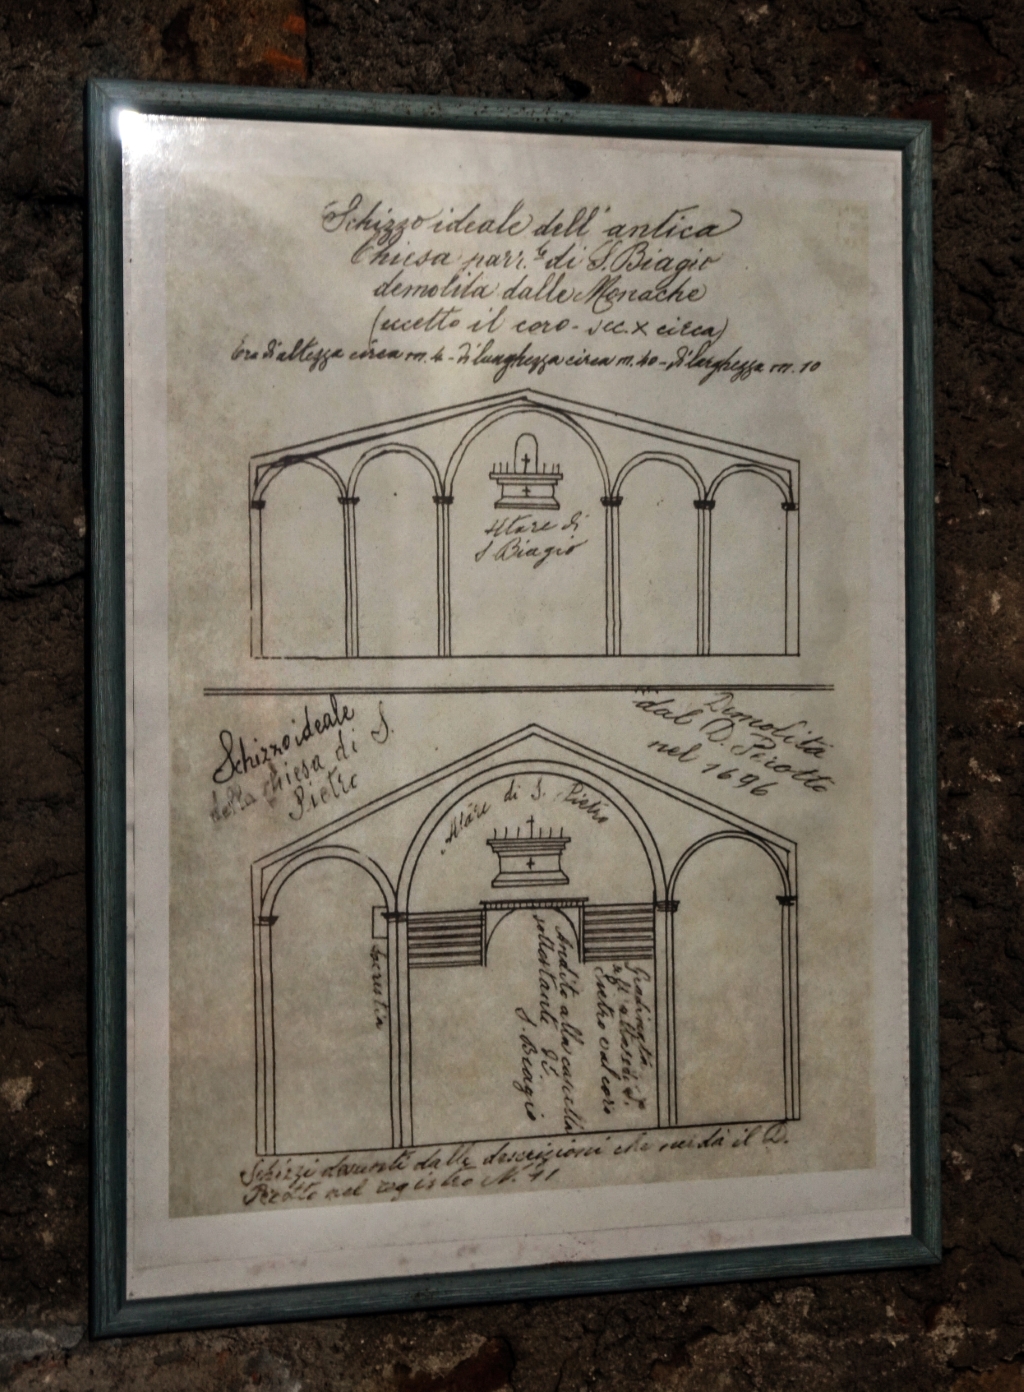 Schizzo ideale dell'antica
Chiesa parr.le di S. Biagio
demolita dalle Monache
(eccetto il coro - sec. X circa)
Era d'altezza circa m. 4 - di lunghezza circa m. 40 - di larghezza m. 10
Altare di
S Biagio
Schizzo ideale
della chiesa di S.
Pietro
Demolita
dal D. Perotto
nel 1696
Altare di S. Pietro
Andito alla
sottostante di
S. Biagio
Gradinata
all'altare di S.
Pietro
Schizzi desunti dalle descrizioni che ne dà il D.
Perotto nel registro N. 41